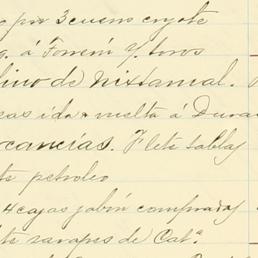 por 3 cueros coyote
á Torreón y toros
lino de Nixtamal.
ida y vuelta á Duran
rcancías. Flete tablas
petroleo
4 cajas jabón compradas
sarapes de Cat.ª